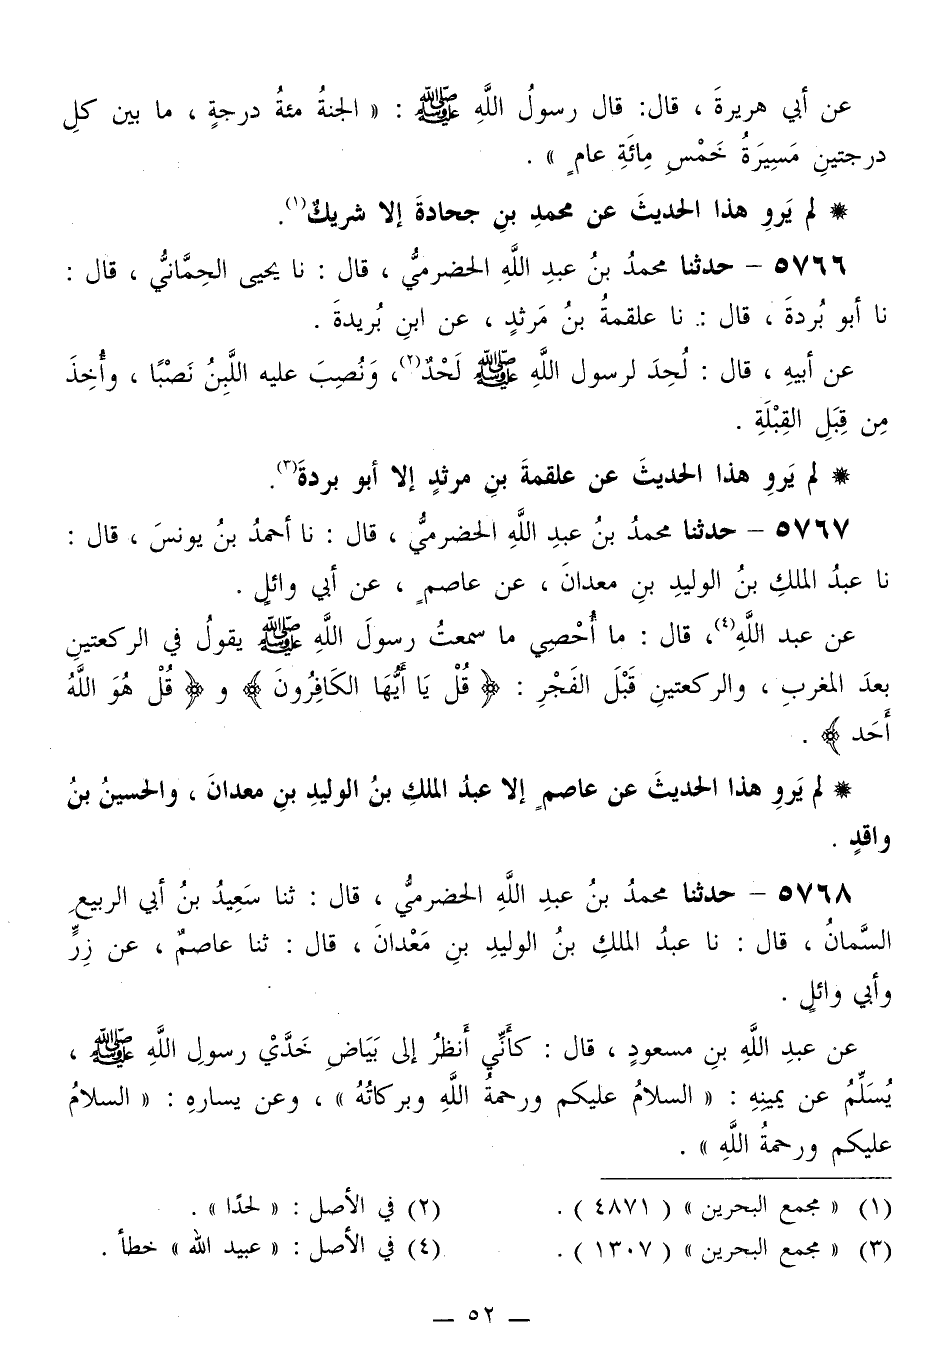 عن أبي هريرةَ ، قال: قال رسولُ اللَّهِ ﷺ : « الجنةُ مئةُ درجةٍ ، ما بين كلِ
درجتينِ مَسِيَرَةُ خَمْسِ مِائَةِ عامٍ » .
* لم يَروِ هذا الحديثَ عن محمدِ بنِ جحادةَ إلا شريكٌ(١).
٥٧٦٦ - حدثنا محمدُ بنُ عبدِ اللَّهِ الحضرميُّ ، قال : نا يحيى الحِمَّانيُّ ، قال :
نا أبو بُردةَ ، قال : نا علقمةُ بنُ مَرثدٍ ، عن ابنِ بُريدةَ .
عن أبيهِ ، قال : لُحِدَ لرسول اللَّهِ ﷺ لَحْدٌ(٢)، وَنُصِبَ عليه اللَّبِنُ نَصْبًا ، وأُخِذَ
مِن قِبَلِ القِبْلَةِ .
* لم يَروِ هذا الحديثَ عن علقمةَ بنِ مرثدٍ إلا أبو بردةَ(٣).
٥٧٦٧ - حدثنا محمدُ بنُ عبدِ اللَّهِ الحضرميُّ ، قال : نا أحمدُ بنُ يونسَ ، قال :
نا عبدُ الملكِ بنُ الوليدِ بنِ معدانَ ، عن عاصمٍ ، عن أبي وائلٍ .
عن عبد اللَّهِ(٤)، قال : ما أُحْصِي ما سمعتُ رسولَ اللَّهِ ﷺ يقولُ في الركعتينِ
بعدَ المغربِ ، والركعتينِ قَبْلَ الفَجْرِ : ﴿ قُلْ يَا أَيُّهَا الكَافِرُونَ ﴾ و ﴿ قُلْ هُوَ اللَّهُ
أَحَد ﴾ .
* لم يَروِ هذا الحديثَ عن عاصمٍ إلا عبدُ الملكِ بنُ الوليدِ بنِ معدانَ ، والحسينُ بنُ
واقدٍ .
٥٧٦٨ - حدثنا محمدُ بنُ عبدِ اللَّهِ الحضرميُّ ، قال : ثنا سَعِيدُ بنُ أبي الربيعِ
السَّمانُ ، قال : نا عبدُ الملكِ بنُ الوليدِ بنِ مَعْدانَ ، قال : ثنا عاصمٌ ، عن زِرٍّ
وأبي وائلٍ .
عن عبدِ اللَّهِ بنِ مسعودٍ ، قال : كأَنِّي أَنظرُ إلى بَيَاضِ خَدَّيْ رسولِ اللَّهِ ﷺ ،
يُسَلِّمُ عن يمينِهِ : « السلامُ عليكم ورحمةُ اللَّهِ وبركاتُهُ » ، وعن يسارهِ : « السلامُ
عليكم ورحمةُ اللَّهِ » .
(١) « مجمع البحرين » ( ٤٨٧١ ) .
(٢) في الأصل : « لحدًا » .
(٣) « مجمع البحرين » ( ١٣٠٧ ) .
(٤) في الأصل : « عبيد الله » خطأ .
— ٥٢ —